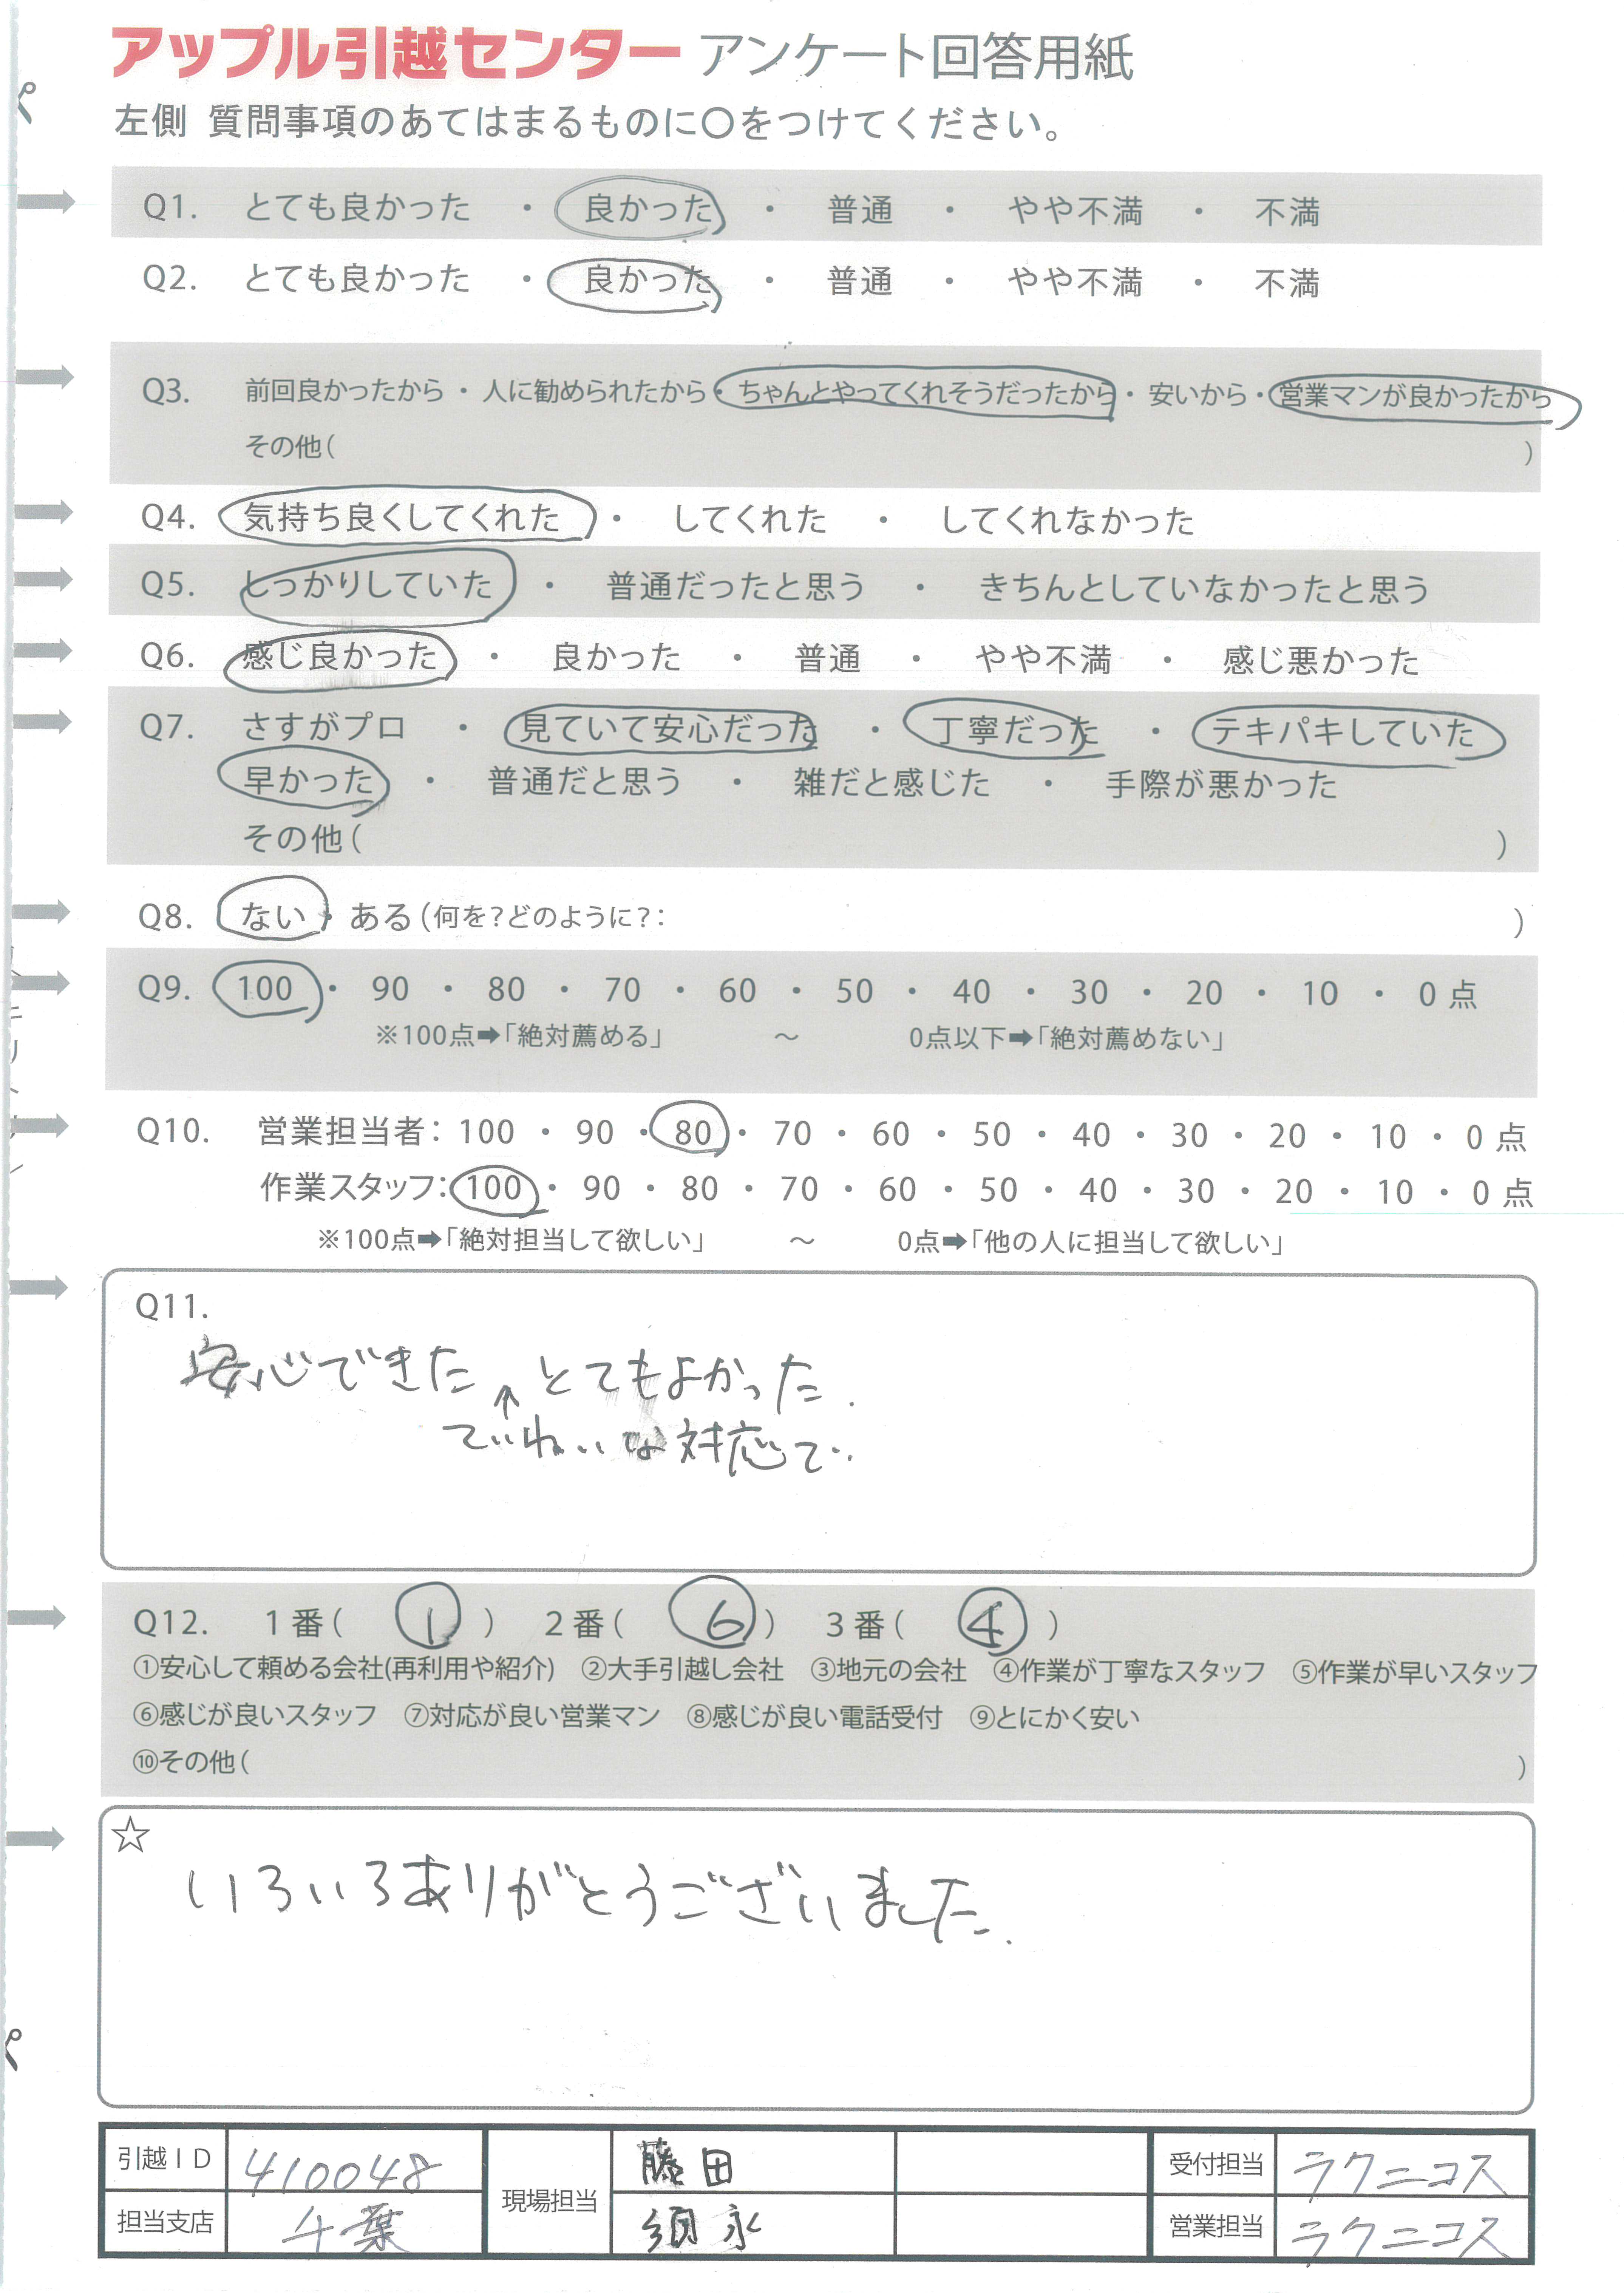 アップル引越センター アンケート回答用紙
左側 質問事項のあてはまるものに○をつけてください。
Q1. とても良かった ・ 良かった ・ 普通 ・ やや不満 ・ 不満
Q2. とても良かった ・ 良かった ・ 普通 ・ やや不満 ・ 不満
Q3. 前回良かったから ・ 人に勧められたから ・ ちゃんとやってくれそうだったから ・ 安いから ・ 営業マンが良かったから
その他( )
Q4. 気持ち良くしてくれた ・ してくれた ・ してくれなかった
Q5. しっかりしていた ・ 普通だったと思う ・ きちんとしていなかったと思う
Q6. 感じ良かった ・ 良かった ・ 普通 ・ やや不満 ・ 感じ悪かった
Q7. さすがプロ ・ 見ていて安心だった ・ 丁寧だった ・ テキパキしていた
早かった ・ 普通だと思う ・ 雑だと感じた ・ 手際が悪かった
その他( )
Q8. ない ・ ある(何を?どのように?: )
Q9. 100 ・ 90 ・ 80 ・ 70 ・ 60 ・ 50 ・ 40 ・ 30 ・ 20 ・ 10 ・ 0 点
※100点➡「絶対薦める」 ～ 0点以下➡「絶対薦めない」
Q10. 営業担当者: 100 ・ 90 ・ 80 ・ 70 ・ 60 ・ 50 ・ 40 ・ 30 ・ 20 ・ 10 ・ 0 点
作業スタッフ: 100 ・ 90 ・ 80 ・ 70 ・ 60 ・ 50 ・ 40 ・ 30 ・ 20 ・ 10 ・ 0 点
※100点➡「絶対担当して欲しい」 ～ 0点➡「他の人に担当して欲しい」
Q11.
安心できた ↑ とてもよかった.
ていねいな対応で
Q12. 1番( ① ) 2番( ⑥ ) 3番( ④ )
①安心して頼める会社(再利用や紹介) ②大手引越し会社 ③地元の会社 ④作業が丁寧なスタッフ ⑤作業が早いスタッフ
⑥感じが良いスタッフ ⑦対応が良い営業マン ⑧感じが良い電話受付 ⑨とにかく安い
⑩その他( )
☆
いろいろありがとうございました.
引越ID 410048 現場担当 藤田 受付担当 ラクニコス
担当支店 千葉 須永 営業担当 ラクニコス